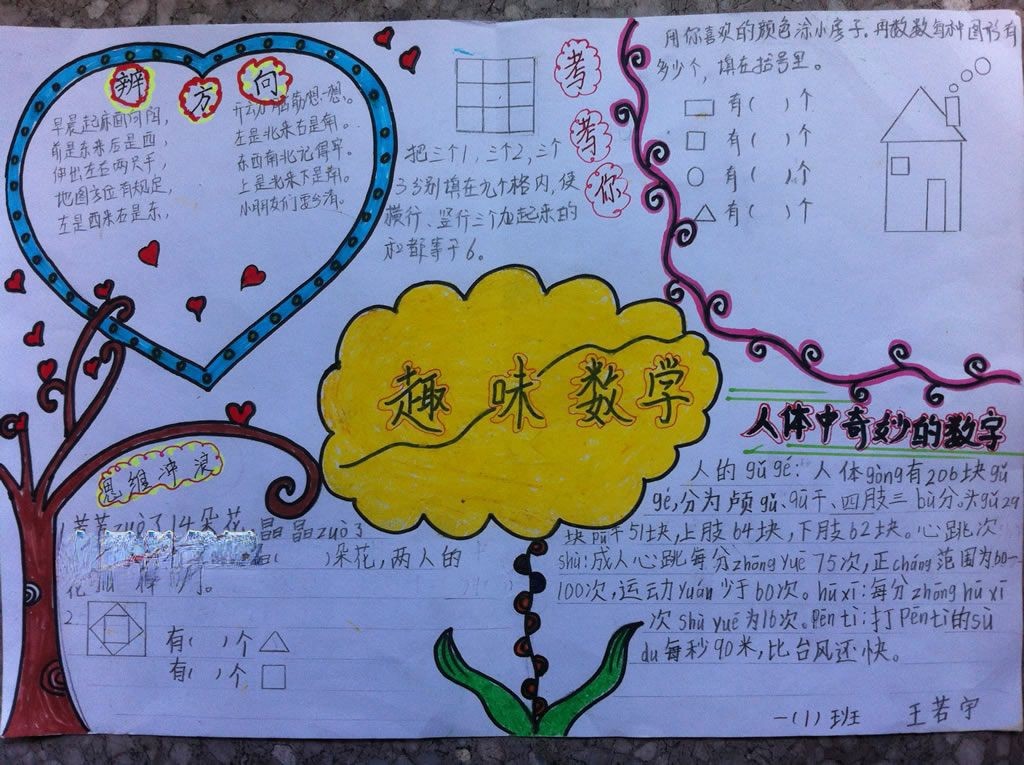 辨方向
早晨起床面向阳，
前是东来后是西，
伸出左右两只手，
地图方位有规定，
左是西来右是东，
开动脑筋想一想。
左是北来右是南。
东西南北记得牢。
上是北来下是南。
小朋友们要分清。
考考你
把三个1，三个2，三个
3分别填在九个格内，使
横行、竖行三个加起来的
和都等于6。
用你喜欢的颜色涂小房子.再数数每种图形有
多少个，填在括号里。
有（ ）个
有（ ）个
有（ ）个
有（ ）个
趣味数学
人体中奇妙的数字
人的gǔ gé：人体gòng有206块gǔ
gé，分为颅gǔ、gǔ干、四肢三bù分。头gǔ29
块 干51块，上肢64块，下肢62块。心跳次
shù：成人心跳每分zhōng yuē 75次，正cháng范围为60一
100次，运动yuán少于60次。hū xī：每分zhōng hū xī
次shù yuē为16次。Pēn tì：打Pēn tì的sù
du每秒90米，比台风还快。
思维冲浪
1. zuò了14朵花
晶晶zuò了
（ ）朵花，两人的
花
2.
有（ ）个
有（ ）个
一（1）班 王若宇